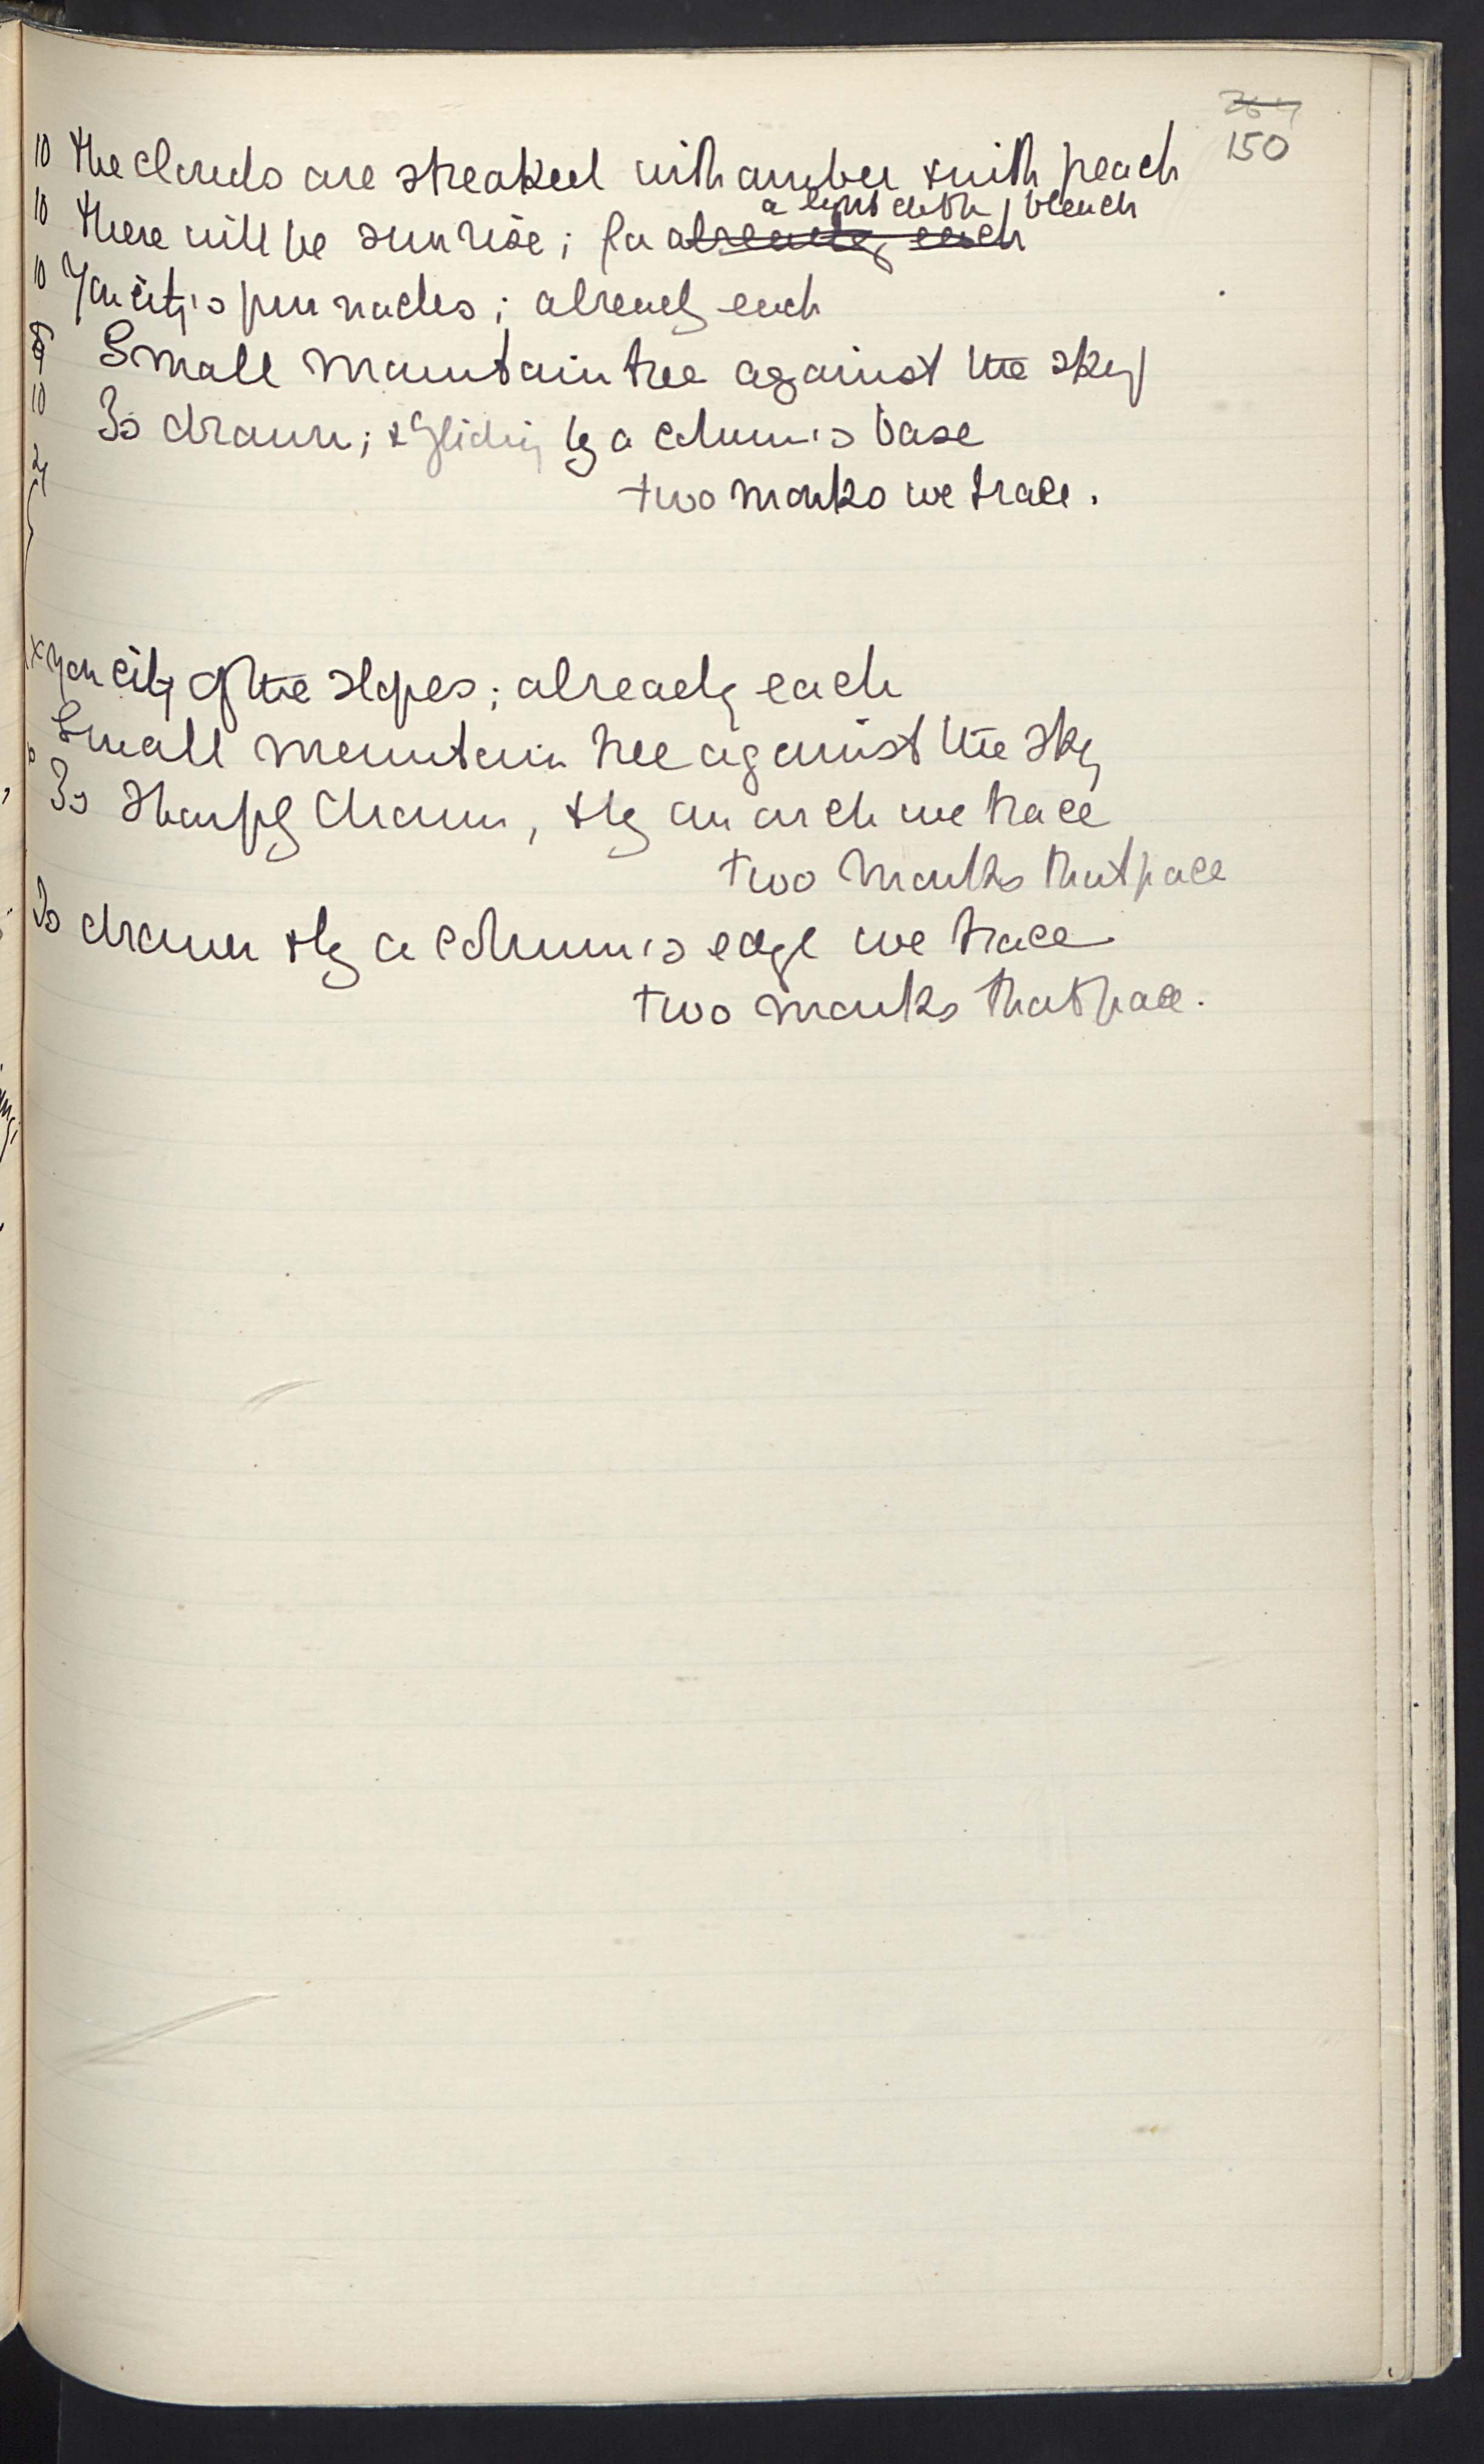 150
10 The clouds are streaked with amber & with peach
a light doth bleach
10 There will be sunrise; for already each
10 Yon city's pinnacles; already each
Small mountain tree against the sky
10 Is drawn; & gliding by a column's base
two monks we trace.
x Yon city of the slopes; already each
Small mountain tree against the sky
Is sharply drawn, & by an arch we trace
two monks that pace
Is drawn & by a column's edge we trace
two monks that pace.